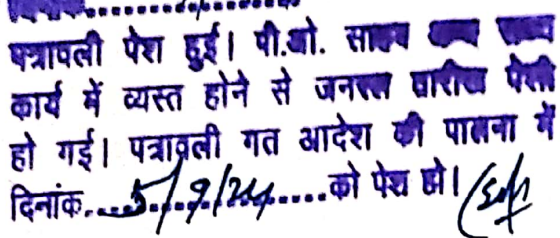 दिनांक....................
पत्रावली पेश हुई। पी.ओ. साहब अन्य राज्य
कार्य में व्यस्त होने से जनरल तारीख पेशी
हो गई। पत्रावली गत आदेश की पालना में
दिनांक....5/9/24....को पेश हो।